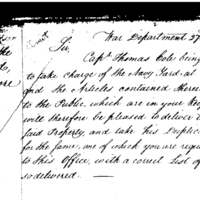 War Department 27
Sir,
Capt. Thomas Cole being
to take charge of the Navy Yard at
and the Articles contained there
to the Public, which are in your Keep
will therefore be pleased to deliver t
said Property, and take his Duplic
for the same, one of which you are requ
to this Office, with a correct List of
so delivered.
the
ore